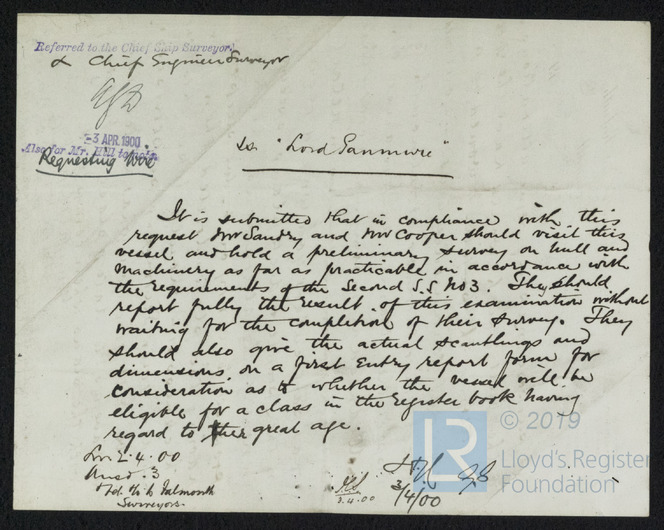 Referred to the Chief Ship Surveyor
& Chief Engineer Surveyor
-3 APR. 1900
Also for Mr. Hill to note
Requesting
ss "Lord
It is submitted that in compliance with this
request Mr Sandry and Mr Cooper should visit this
vessel and hold a preliminary survey on hull and
machinery as far as practicable in accordance with
the requirements of the Second S.S No3. They should
report fully the result of this examination without
waiting for the completion of their survey. They
should also give the actual scantlings and
dimensions on a first Entry report form for
consideration as to whether the vessel will be
eligible for a class in the register book having
regard to her great age.
2.4.00
3
Falmouth
Surveyors.
3.4.00
3/4/00
LR
© 2019
Lloyd's Register
Foundation